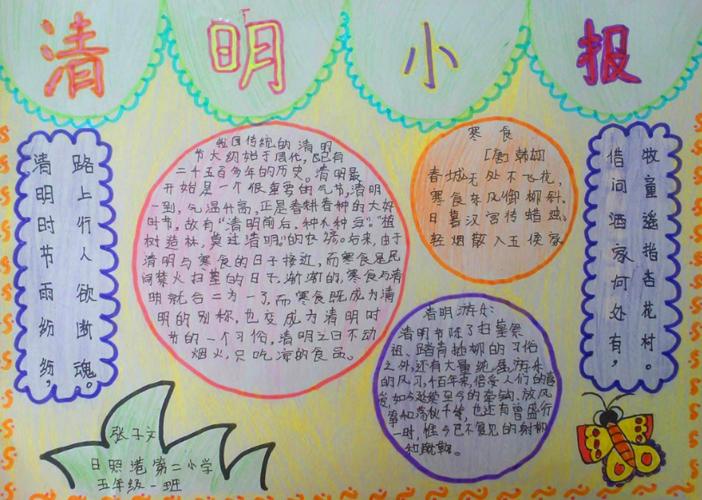 清明小报
清明时节雨纷纷，
路上行人欲断魂。
我国传统的清明
节大约始于周代，已有
二千五百多年的历史。清明最
开始是一个很重要的气节，清明
一到，气温升高，正是春耕春种的大好
时节，故有“清明前后，种瓜种豆”。“植
树造林，莫过清明”的农谚。后来，由于
清明与寒食的日子接近，而寒食是民
间禁火扫墓的日子，渐渐的，寒食与清
明就合二为一了，而寒食既成为清
明的别称，也变成为清明时
节的一个习俗，清明之日不动
烟火，只吃凉的食品。
寒食
[唐]韩翃
春城无处不飞花，
寒食东风御柳斜。
日暮汉宫传蜡烛，
轻烟散入五侯家
清明游戏：
清明节除了扫墓祭
祖、踏青插柳的习俗
之外，还有大量游乐
的风习，千百年来，倍受人们的喜
爱，如今延续至今的牵钩、放风
筝和荡秋千等，也还有曾盛行
一时，惟今已不复见的射柳
和蹴鞠。
借问酒家何处有，
牧童遥指杏花村。
张子文
日照港第二小学
五年级一班